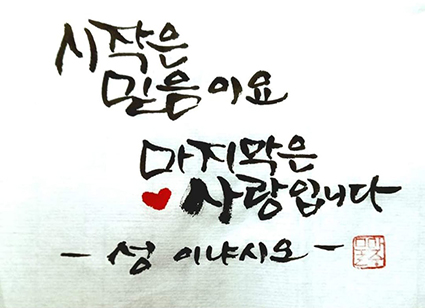 시작은
믿음이요
마지막은
사랑입니다
- 성 이냐시오 -